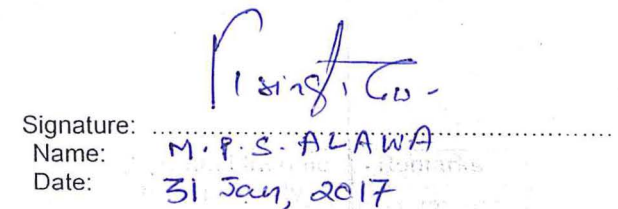 Signature:
Name: M.P.S. ALAWA
Date: 31 Jan, 2017